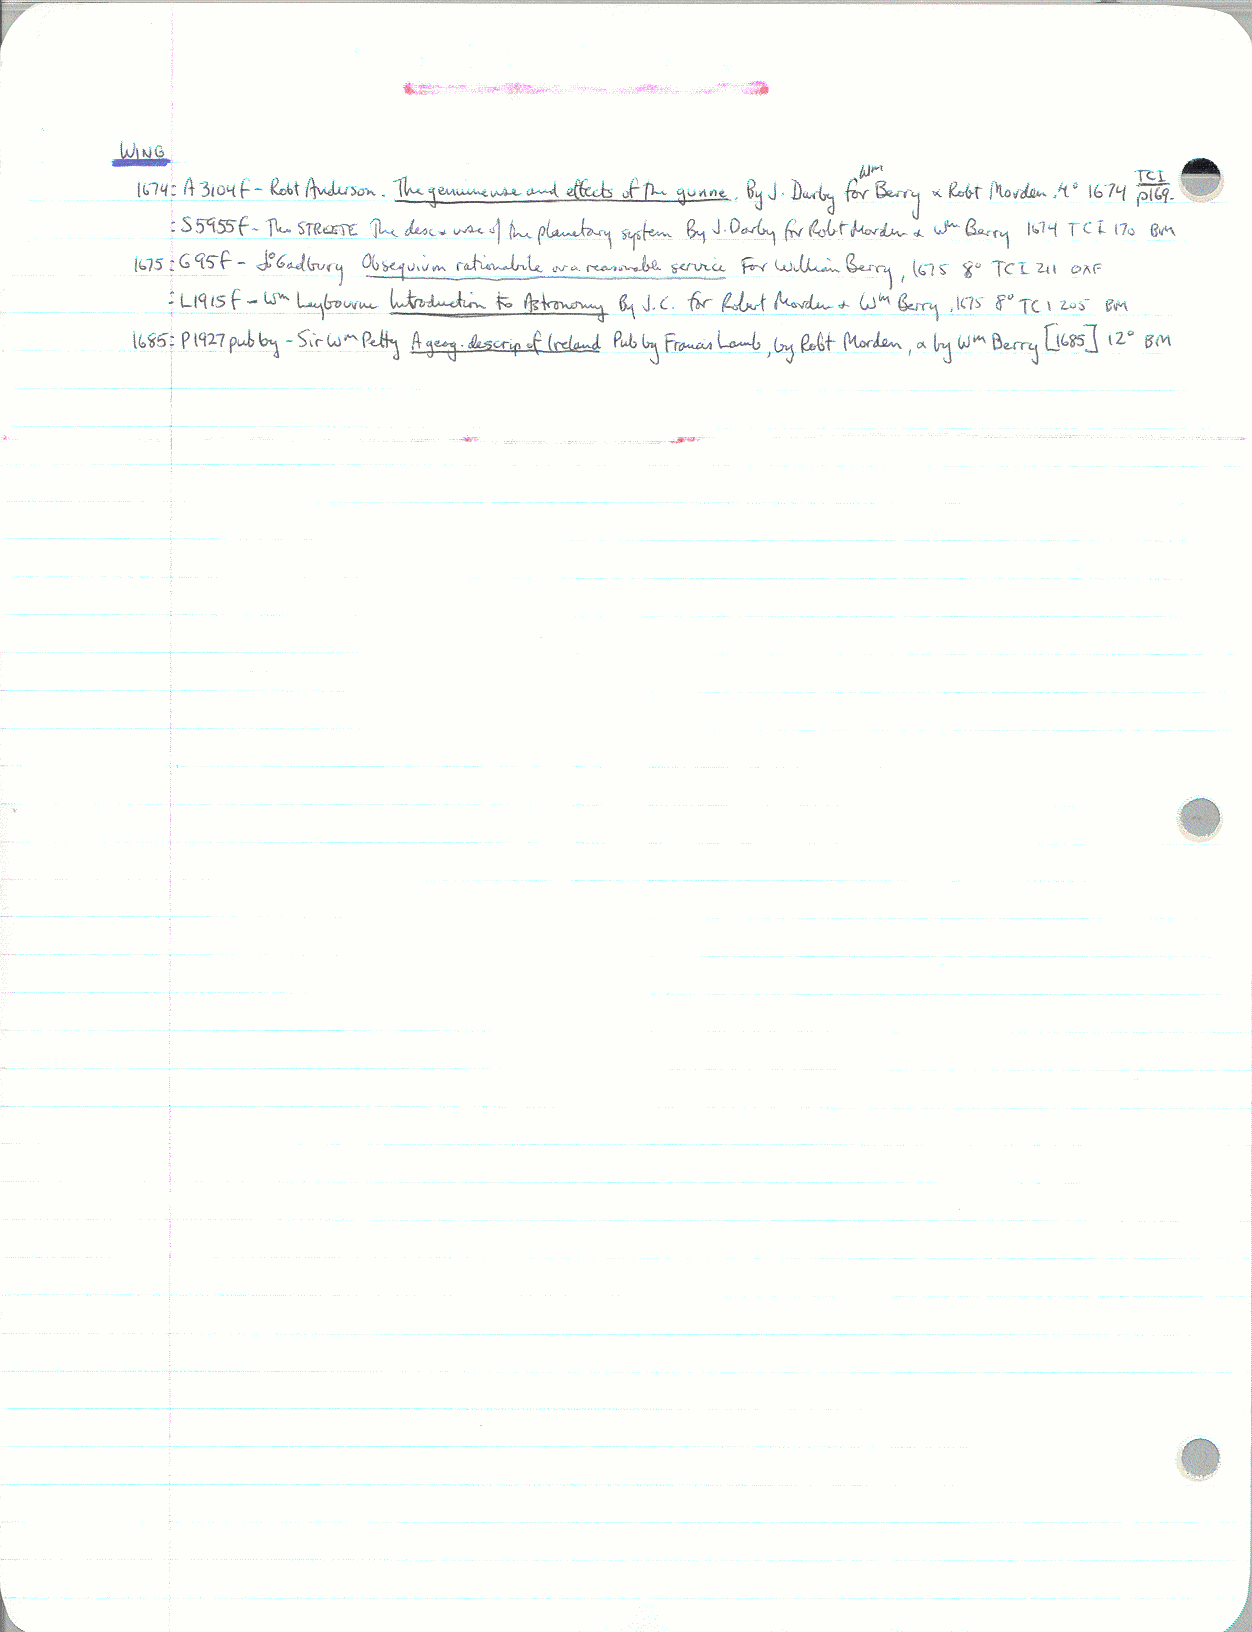 WING
1674: A3104f - Robt Anderson. The genuine use and effects of the gunne. By J. Darby for Wm Berry & Robt Morden. 4° 1674 TCI p169.
: S5955f - Tho STREETE The desc & use of the planetary system By J. Darby for Robt Morden & Wm Berry 1674 TCI 170 BM
1675: G95f - Jo Gadbury Obsequium rationabile or a reasonable service For William Berry, 1675 8° TCI 211 OXF
: L1915f - Wm Leybourne Introduction to Astronomy By J.C. for Robert Morden & Wm Berry, 1675 8° TC I 205 BM
1685: P1927 pub by - Sir Wm Petty A geog. descrip of Ireland Pub by Francis Lamb, by Robt Morden, & by Wm Berry [1685] 12° BM